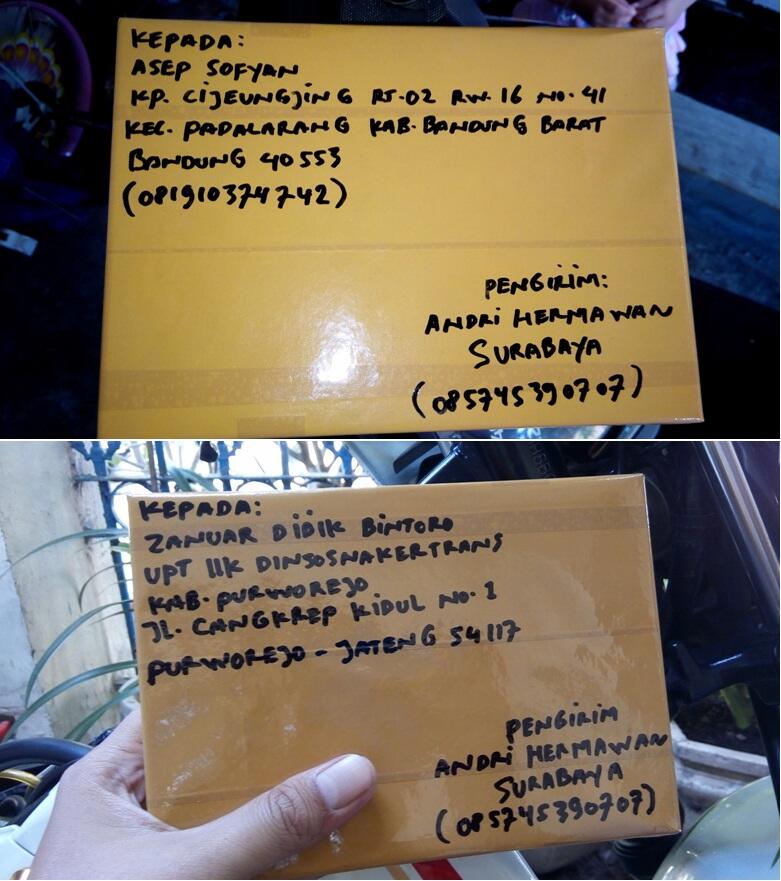 KEPADA:
ASEP SOFYAN
KP. CIJEUNGJING RT.02 RW.16 NO.41
KEC. PADALARANG KAB.BANDUNG BARAT
BANDUNG 40553
(081910374742)
PENGIRIM:
ANDRi HERMAWAN
SURABAYA
(085745390707)
KEPADA:
ZANUAR DiDiK BiNTORO
UPT LLK DINSOSNAKERTRANS
KAB. PURWOREJO
JL. CANGKREP KIDUL NO.1
PURWOREJO - JATENG 54117
PENGIRIM
ANDRi HERMAWAN
SURABAYA
(085745390707)